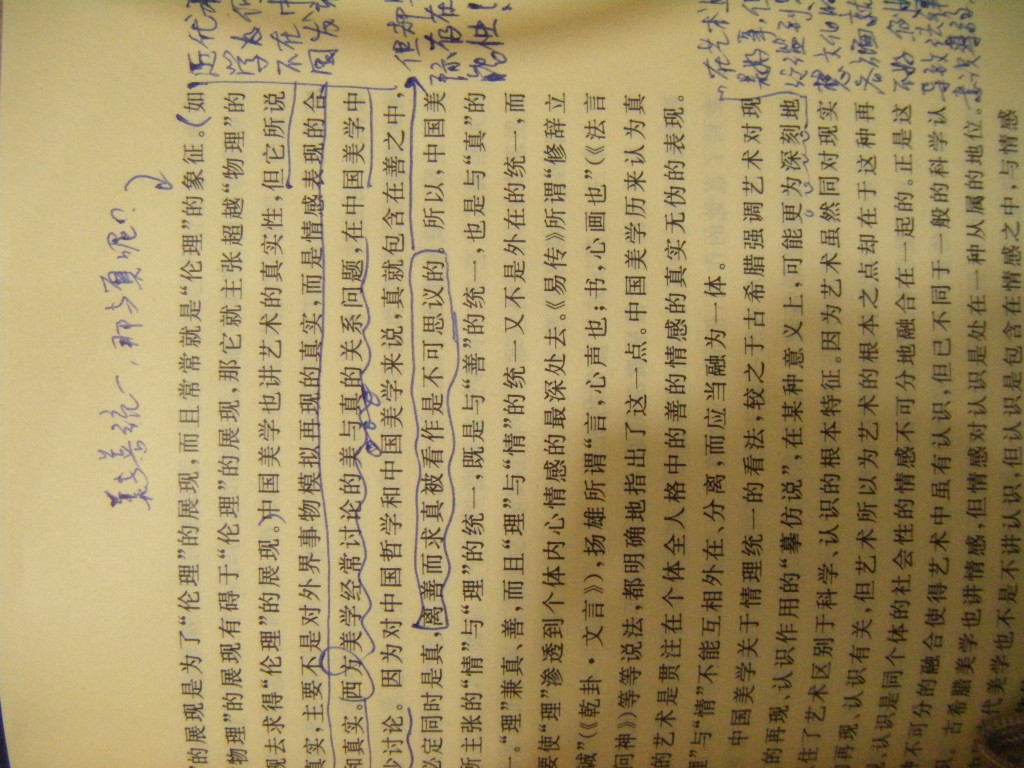 美与善统一，那与真呢？
近代
学为何
不在中
国发
但却
际存在
"在艺术
"的展现是为了"伦理"的展现，而且常常就是"伦理"的象征。（如
物理"的展现有碍于"伦理"的展现，那它就主张超越"物理"的
现去求得"伦理"的展现。）中国美学也讲艺术的真实性，但它所说
真实，主要不是对外界事物模拟再现的真实，而是情感表现的合
和真实。西方美学经常讨论的美与真的关系问题，在中国美学中
少讨论。因为对中国哲学和中国美学来说，真就包含在善之中，
必定同时是真，离善而求真被看作是不可思议的。所以，中国美
所主张的"情"与"理"的统一，既是与"善"的统一，也是与"真"的
一。"理"兼真、善，而且"理"与"情"的统一又不是外在的统一，而
要使"理"渗透到个体内心情感的最深处去。《易传》所谓"修辞立
诚"（《乾卦·文言》），扬雄所谓"言，心声也；书，心画也"（《法言
问神》）等等说法，都明确地指出了这一点。中国美学历来认为真
的艺术是贯注在个体全人格中的善的情感的真实无伪的表现。
理"与"情"不能互相外在、分离，而应当融为一体。
中国美学关于情理统一的看法，较之于古希腊强调艺术对现
的再现、认识作用的"摹仿说"，在某种意义上，可能更为深刻地
住了艺术区别于科学、认识的根本特征。因为艺术虽然同对现实
再现、认识有关，但艺术所以为艺术的根本之点却在于这种再
、认识是同个体的社会性的情感不可分地融合在一起的。正是这
种不可分的融合使得艺术中虽有认识，但已不同于一般的科学认
。古希腊美学也讲情感，但情感对认识是处在一种从属的地位。
代美学也不是不讲认识，但认识是包含在情感之中，与情感